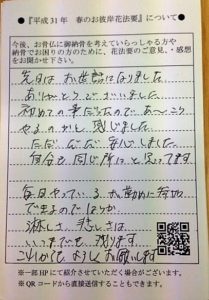 ●『平成31年 春のお彼岸花法要』について●
今後、お骨仏に御納骨を考えていらっしゃる方や
納骨をされた方に、花法要のご意見、・感想
をお聞かせ下さい。
先日は お世話になりました
ありがとうございました
初めての事だったので あーこう
やるのかと 感じました
ただただ 安心しました
自分も同じ所にと思ってます
毎日やっている お勤めに参加
できるので ほっか
淋しさ 悲しさは
いつまでも 残ります
これからも よろしくお願いします
※一部HPにて紹介させていただく場合がございます。
※QRコードから直接送信することもできます。